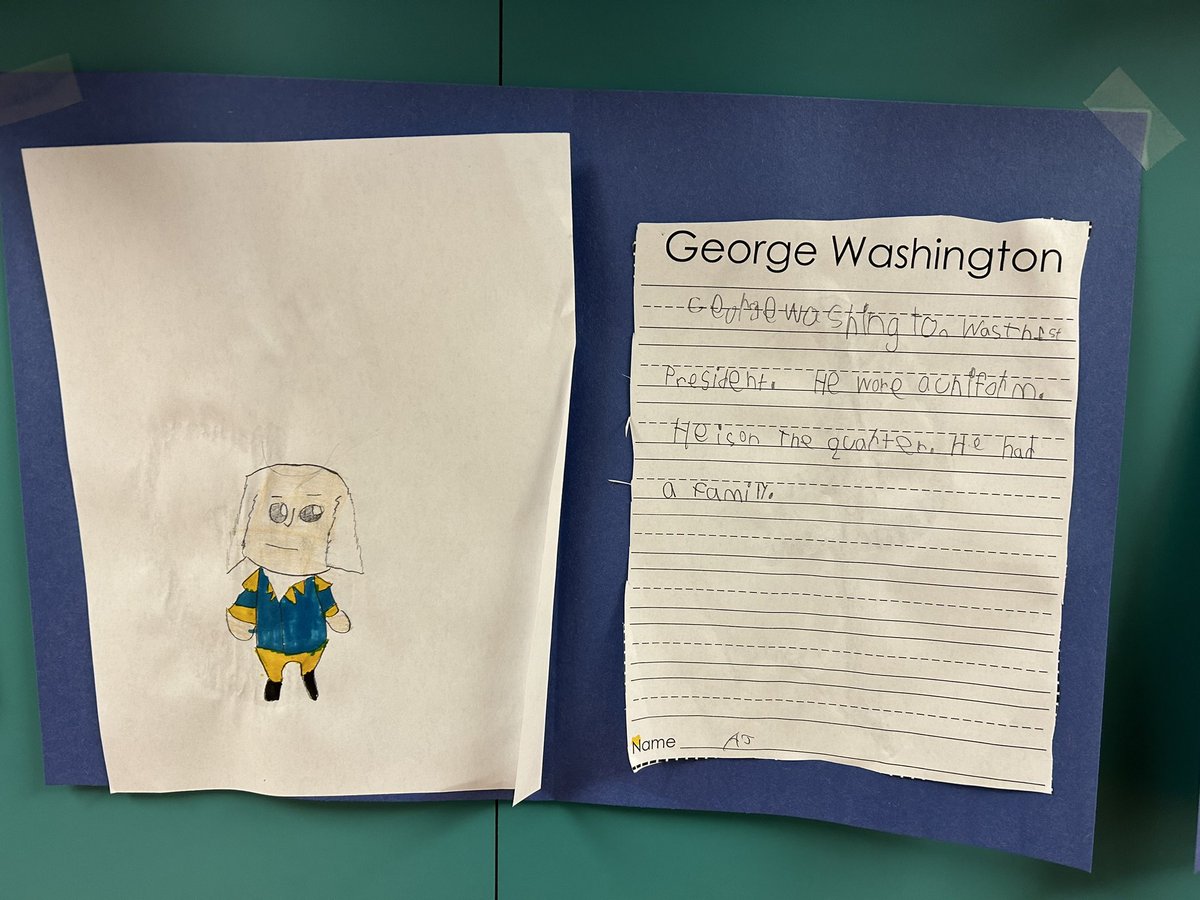 George Washington
George washing ton was th 1st
President. He wore a uniform.
He is on The quarter. He had
a Family.
Name AJ